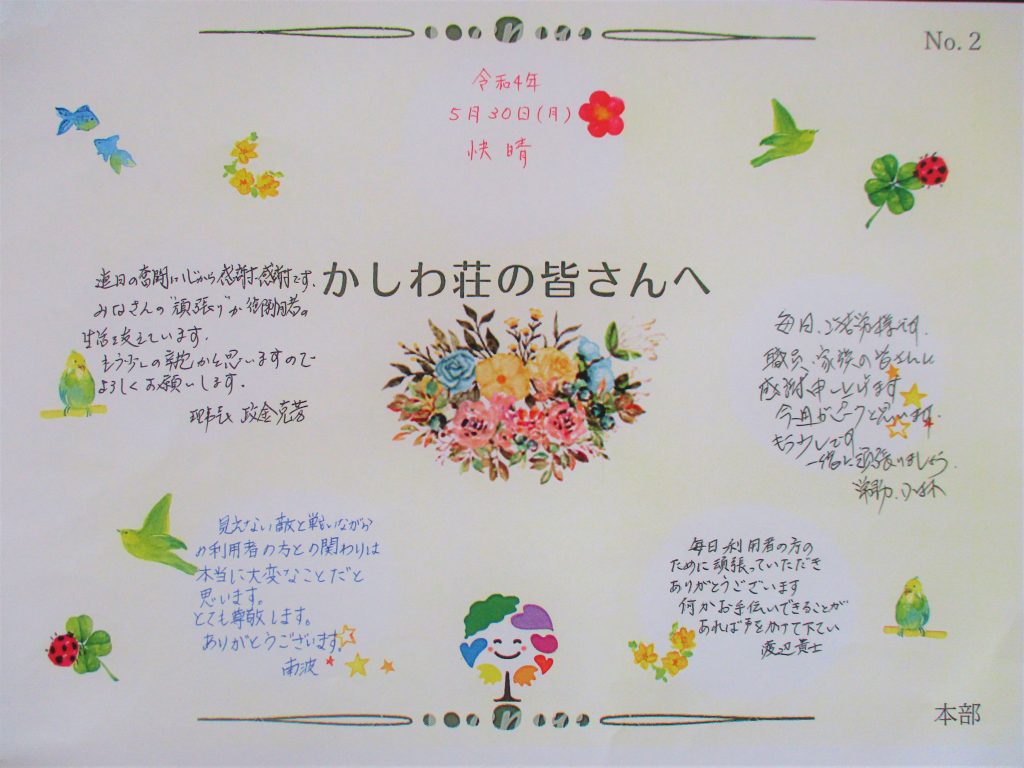 No. 2
令和4年
5月30日(月)
快晴
かしわ荘の皆さんへ
連日の奮闘に心から感謝感謝です.
みなさんの"頑張り"が御利用者の
生活を支えています.
もう少しの辛抱かと思いますので
よろしくお願いします.
毎日、ご苦労様です.
職員、家族の皆さんに
感謝申し上げます
今週がピークと思います.
もう少しです
一緒に頑張りましょう.
見えない敵と戦いながら
の利用者の方との関わりは
本当に大変なことだと
思います。
とても尊敬します。
ありがとうございます。
南波
毎日利用者の方の
ために頑張っていただき
ありがとうございます
何かお手伝いできることが
あれば声をかけて下さい
渡辺貴士
本部